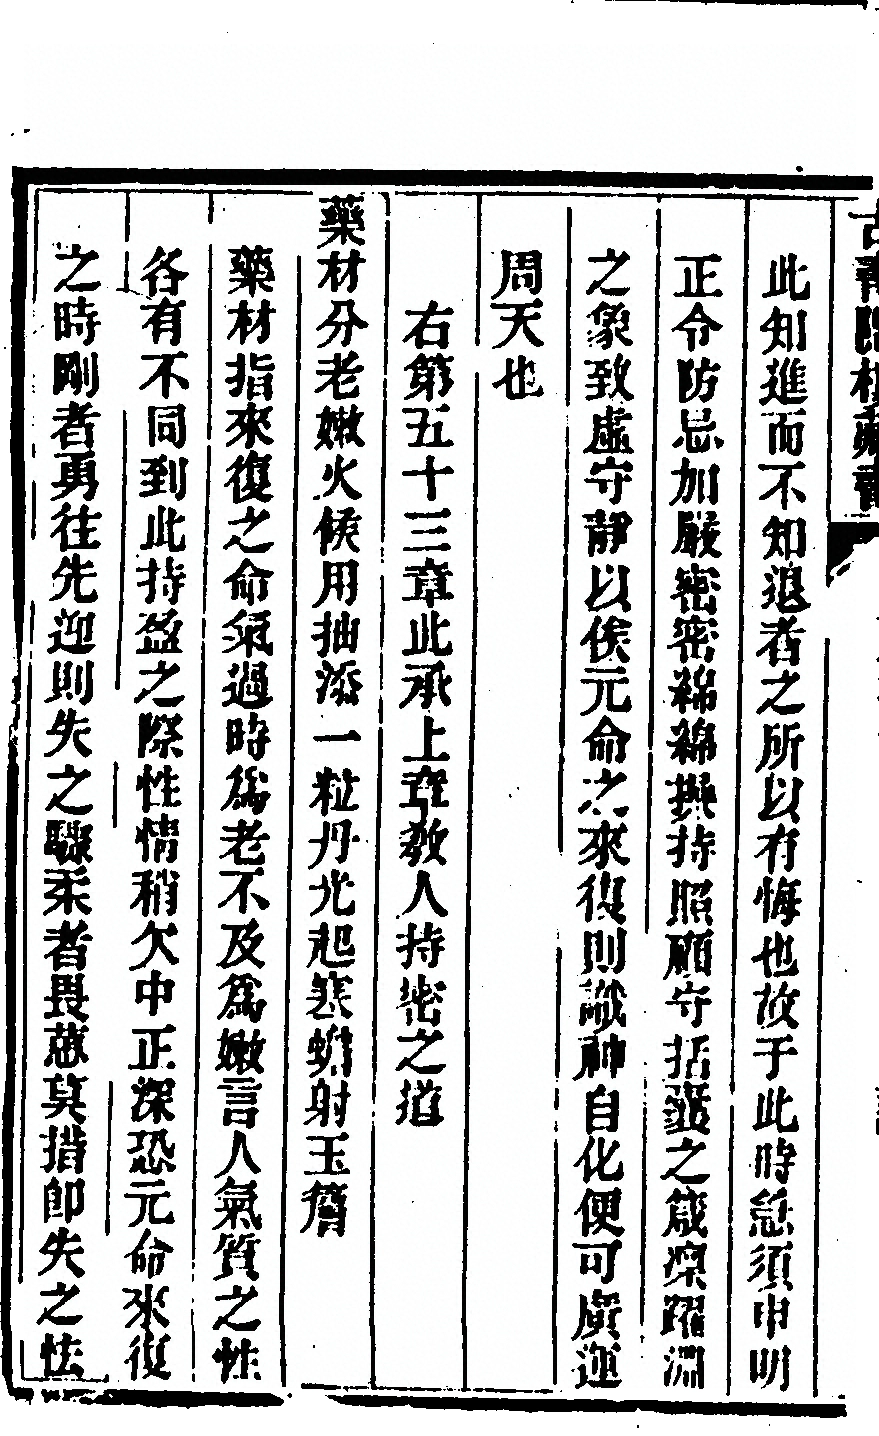 古書隱樓藏書
此知進而不知退者之所以有悔也故于此時急須申明
正令防忌加嚴密密綿綿操持照顧守括囊之箴凜躍淵
之象致虛守靜以俟元命之來復則識神自化便可廣運
周天也
右第五十三章此承上章教人持密之道
藥材分老嫩火候用抽添一粒丹光起寒蟾射玉簷
藥材指來復之命氣過時爲老不及爲嫩言人氣質之性
各有不同到此持盈之際性情稍欠中正深恐元命來復
之時剛者勇往先迎則失之驟柔者畏葸莫措卽失之怯